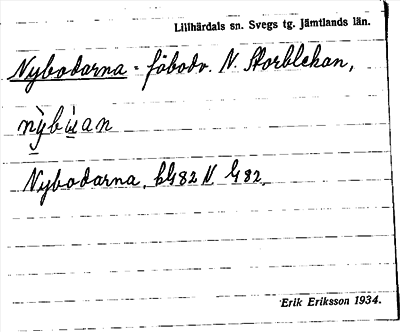 Lillhärdals sn. Svegs tg. Jämtlands län.
Nybodarna = fäbodv. N. Storblekan,
nỳbùan
Nybodarna, bG82 N G82.
Erik Eriksson 1934.